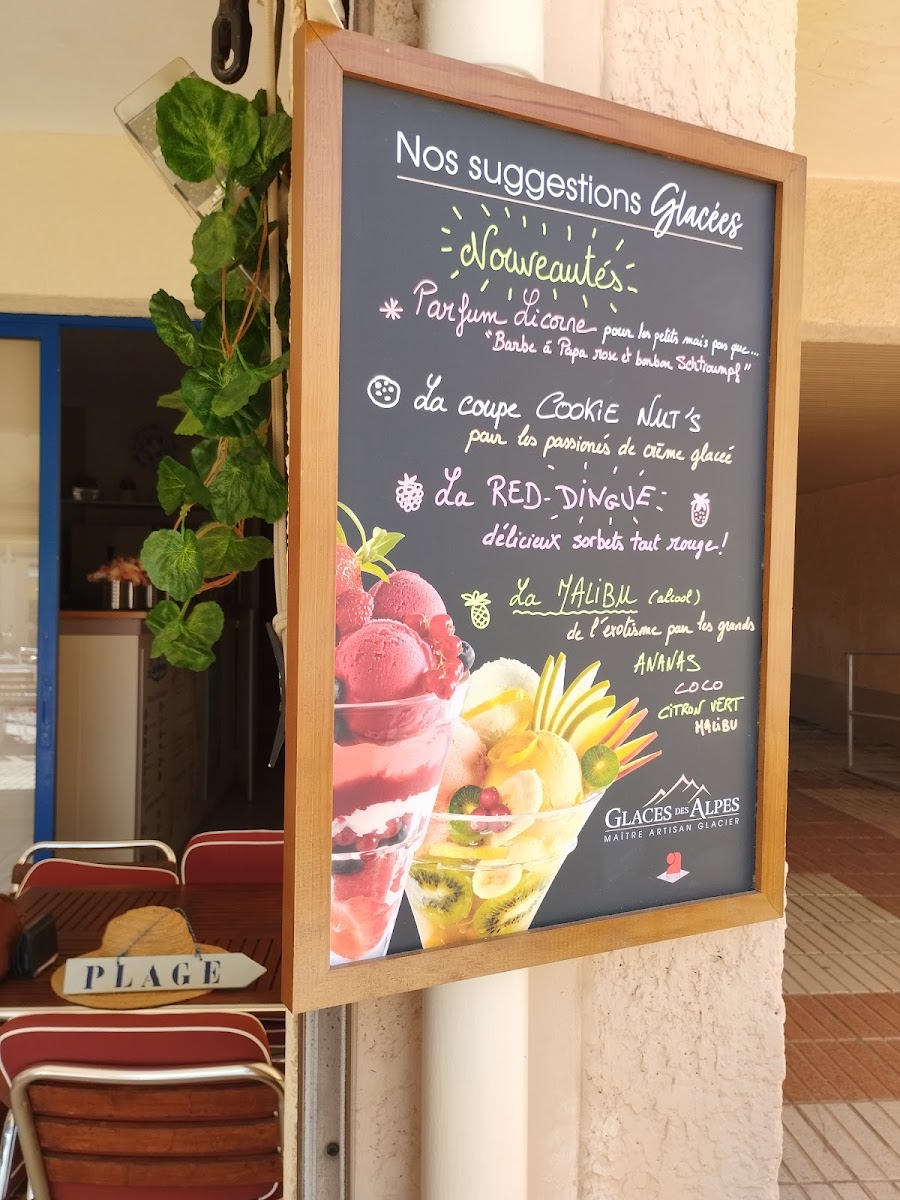 Nos suggestions Glacées
Nouveautés
Parfum Licorne pour les petits mais pas que...
"Barbe à Papa rose et bonbon Schtroumpf"
La coupe COOKIE NUT'S
pour les passionés de crème glacéé
La RED-DINGUE
délicieux sorbets tout rouge!
La MALIBU (alcool)
de l'éxotisme pour les grands
ANANAS
COCO
CITRON VERT
MALIBU
GLACES DES ALPES
MAÎTRE ARTISAN GLACIER
PLAGE